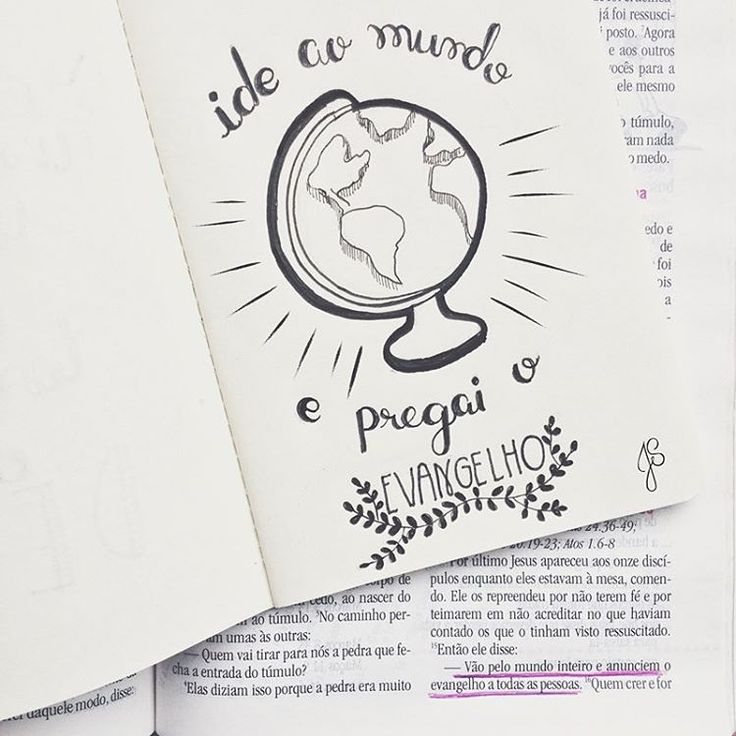 ide ao mundo
e pregai o
EVANGELHO
JS
já foi ressusci-
posto. ⁷Agora
e aos outros
vocês para a
ele mesmo
túmulo,
nada
medo.
edo e
de
foi
a
-
ao túmulo. ³No caminho per-
umas às outras:
— Quem vai tirar para nós a pedra que fe-
cha a entrada do túmulo?
⁴Elas diziam isso porque a pedra era muito
de
cedo, ao nascer do
daquele modo, disse:
24.36-49;
20.19-23; Atos 1.6-8
Por último Jesus apareceu aos onze discí-
pulos enquanto eles estavam à mesa, comen-
do. Ele os repreendeu por não terem fé e por
teimarem em não acreditar no que haviam
contado os que o tinham visto ressuscitado.
¹⁵Então ele disse:
— Vão pelo mundo inteiro e anunciem o
evangelho a todas as pessoas. ¹⁶Quem crer e for